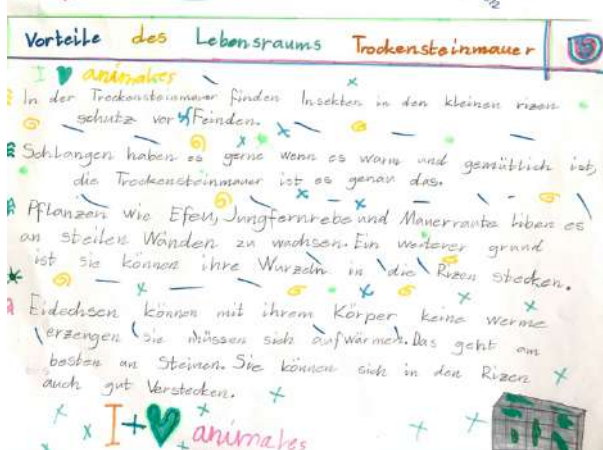 Vorteile des Lebensraums Trockensteinmauer
I ♥ animales
In der Trockensteinmauer finden Insekten in den kleinen rizen
schutz vor Feinden.
Schlangen haben es gerne wenn es warm und gemüttlich ist,
die Trockensteinmauer ist es genau das.
Pflanzen wie Efeu, Jungfernrebe und Mauerraute liben es
an steilen Wänden zu wachsen. Ein weiterer grund
ist sie können ihre Wurzeln in die Rizen stecken.
Eidechsen können mit ihrem Körper keine werme
erzengen sie müssen sich aufwärmen. Das geht am
besten an Steinen. Sie können sich in den Rizen
auch gut Verstecken.
I + ♥ animales